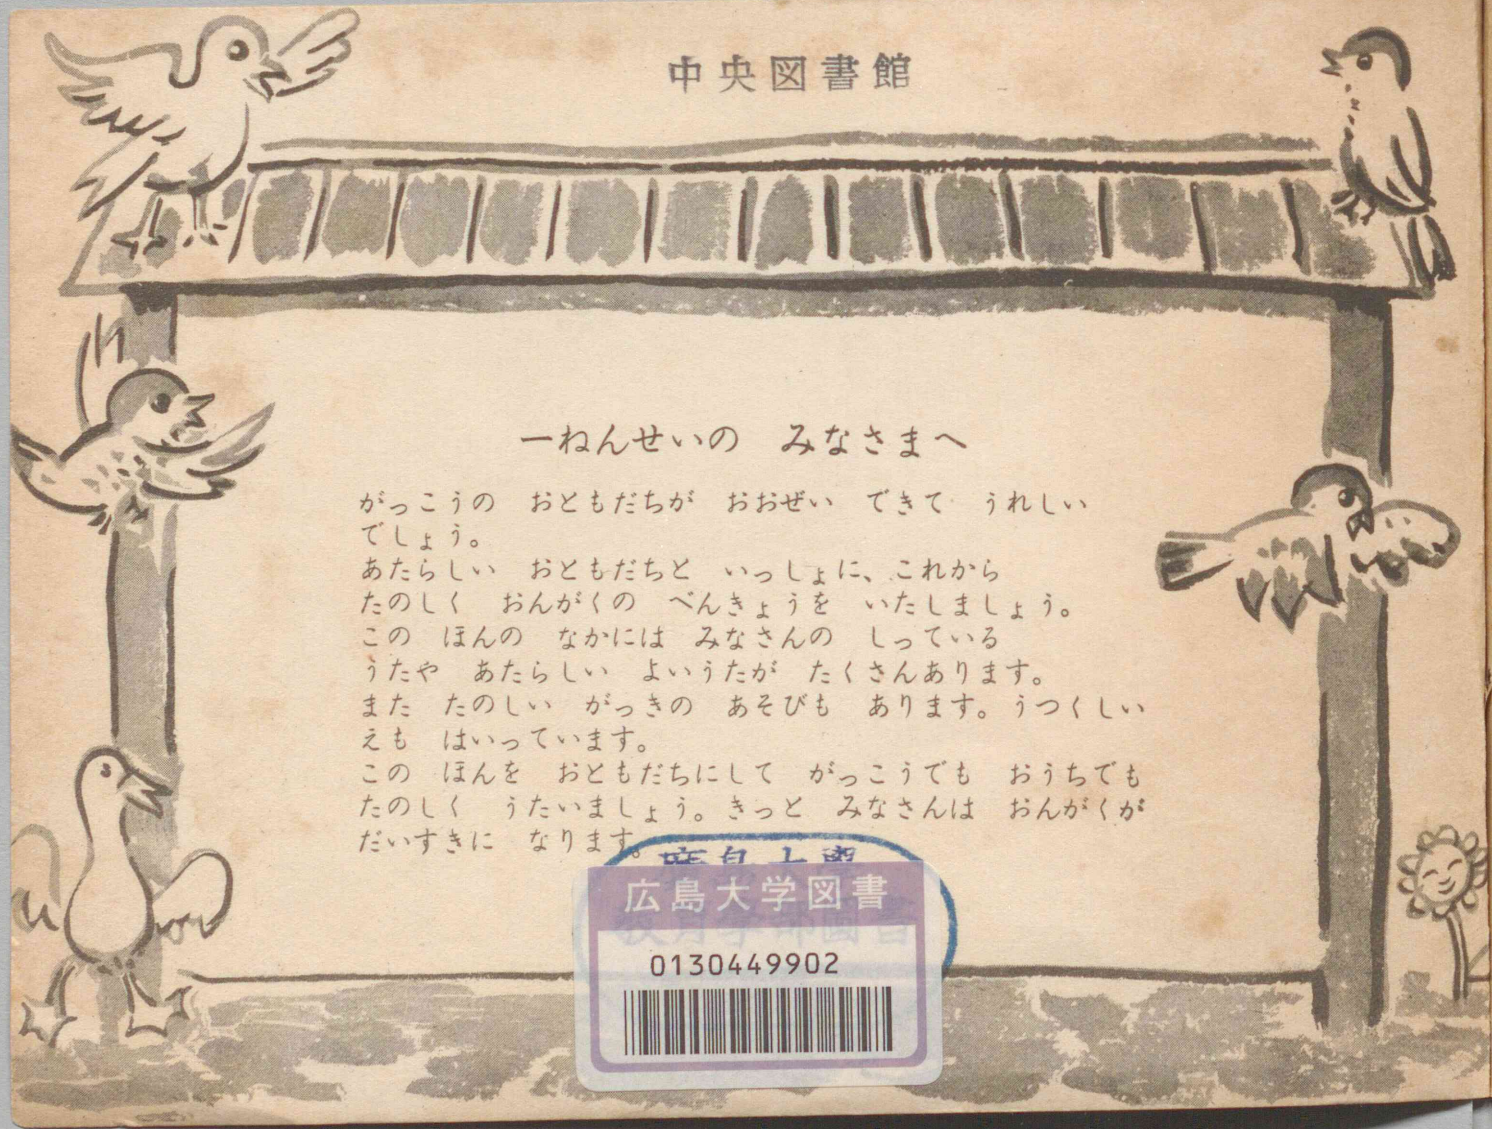 中央図書館
一ねんせいの　みなさまへ
がっこうの　おともだちが　おおぜい　できて　うれしい
でしょう。
あたらしい　おともだちと　いっしょに、これから
たのしく　おんがくの　べんきょうを　いたしましょう。
この　ほんの　なかには　みなさんの　しっている
うたや　あたらしい　よいうたが　たくさんあります。
また　たのしい　がっきの　あそびも　あります。うつくしい
えも　はいっています。
この　ほんを　おともだちにして　がっこうでも　おうちでも
たのしく　うたいましょう。きっと　みなさんは　おんがくが
だいすきに　なります。
広島大学図書
0130449902